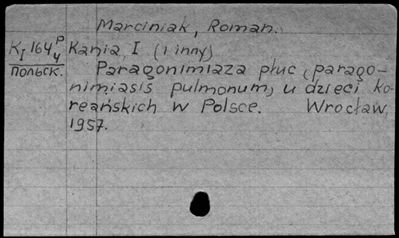 Marciniak, Roman.
K I 164 P/4 Kania, I (i inny)
польск. Paragonimiaza płuc (parago-
nimiasis pulmonum) u dzieci ko-
reańskich w Polsce. Wrocław,
1957.